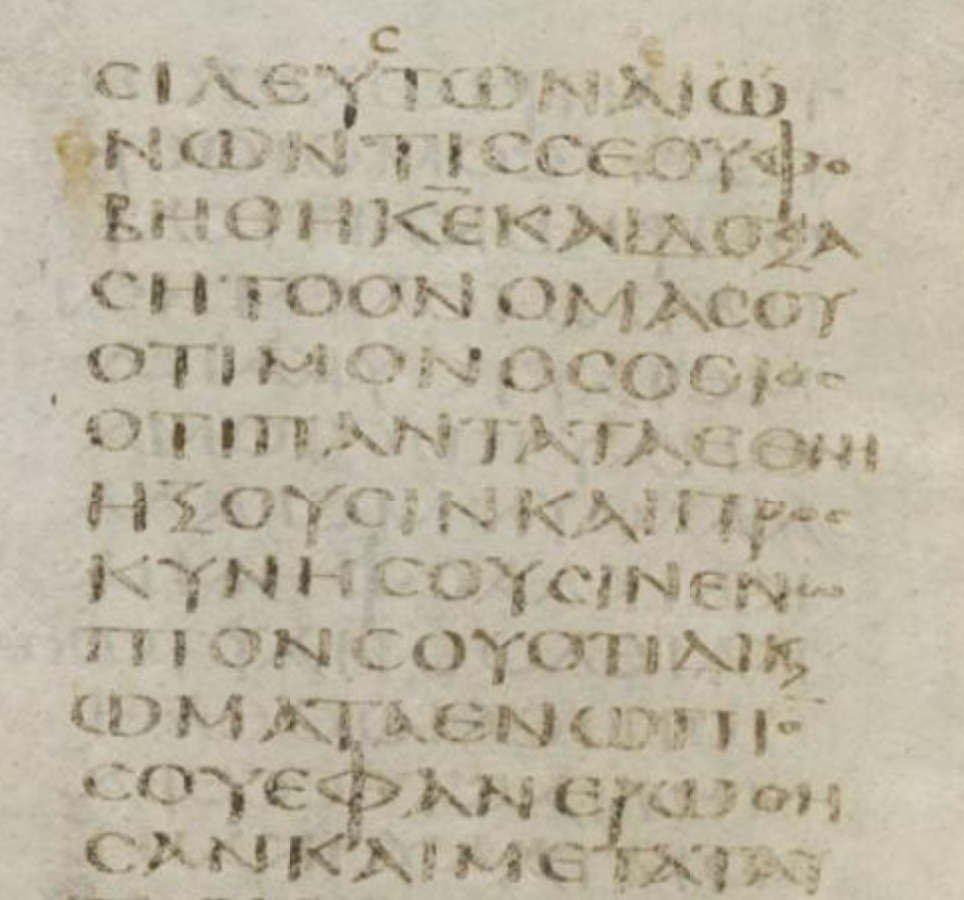 ϹΙΛΕΥϹΤΩΝΑΙΩ
ΝΩΝΤΙϹϹΕΟΥΦΟ
ΒΗΘΗΚ̅Ε̅ΚΑΙΔΟΞΑ
ϹΗΤΟΟΝΟΜΑϹΟΥ
ΟΤΙΜΟΝΟϹΟϹΙΟϹ
ΟΤΙΠΑΝΤΑΤΑΕΘΝΗ
ΗΞΟΥϹΙΝΚΑΙΠΡΟϹ
ΚΥΝΗϹΟΥϹΙΝΕΝΩ
ΠΙΟΝϹΟΥΟΤΙΔΙϏ
ΩΜΑΤΑΕΝΩΠΙΟ̅
ϹΟΥΕΦΑΝΕΡΩΘΗ
ϹΑΝΚΑΙΜΕΤΑΤΑΥ